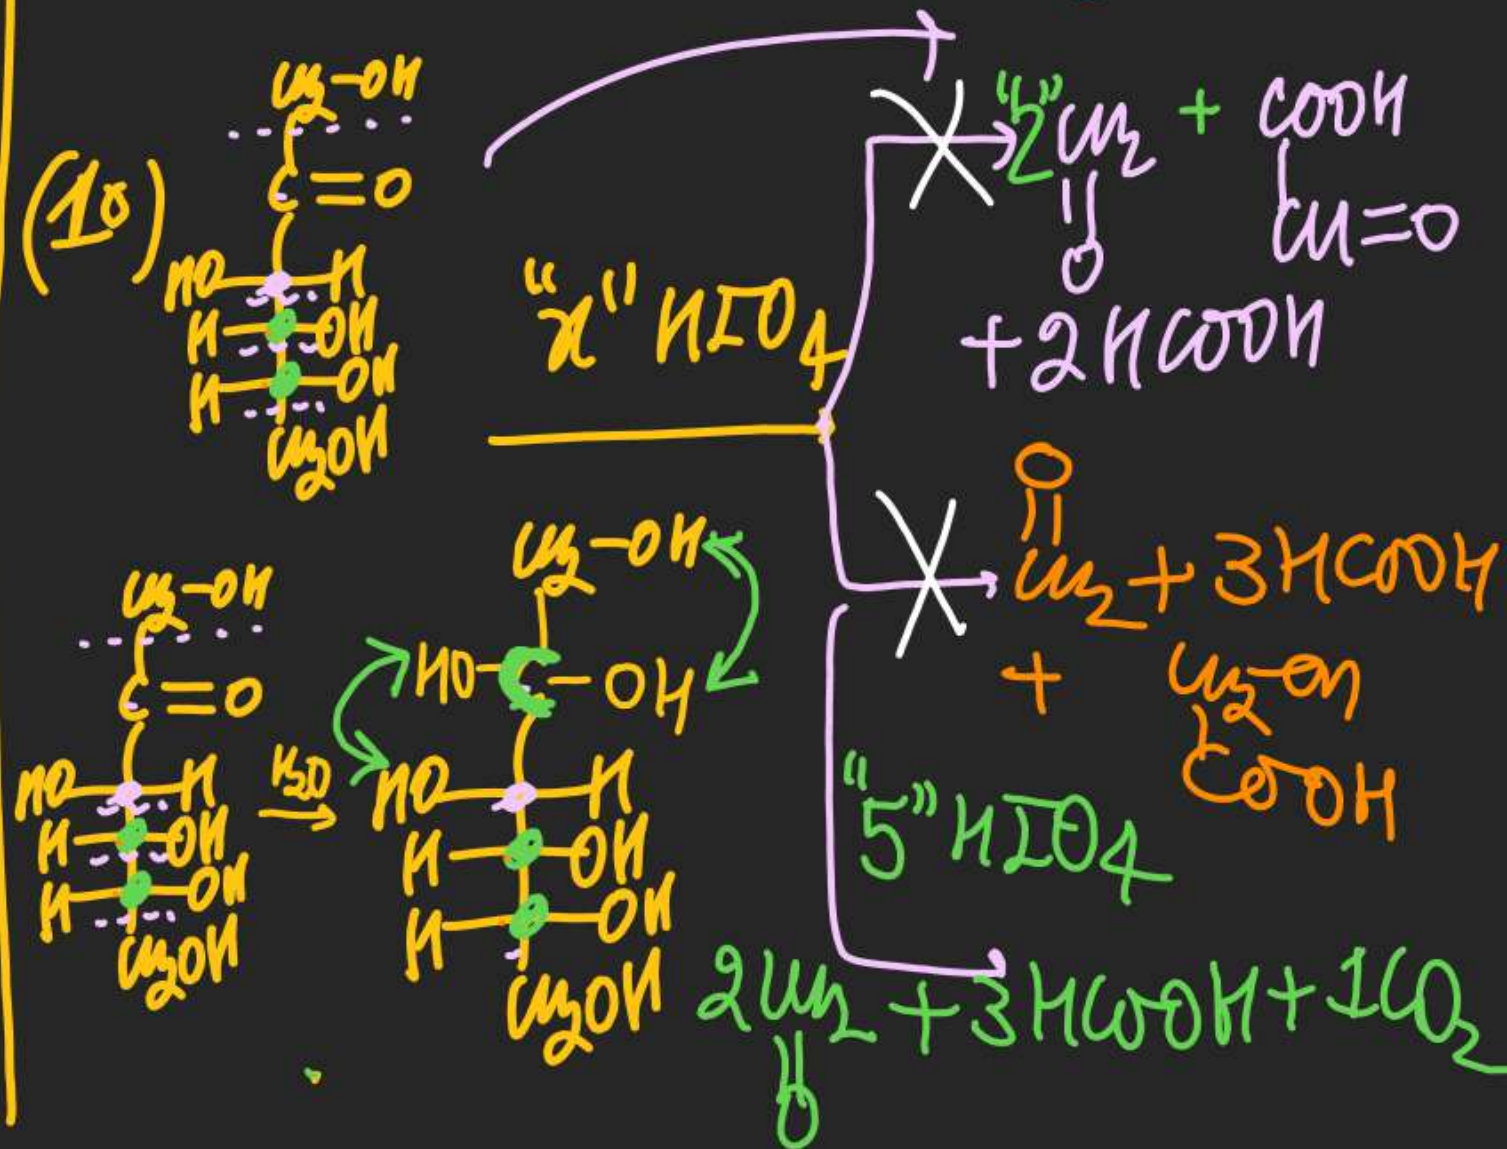 (10)
CH2-OH
C=O
HO H
H OH
H OH
CH2OH
"x" HIO4
"2" CH2 + COOH
O CH=O
+ 2HCOOH
O
CH2 + 3HCOOH
+ CH2-OH
COOH
CH2-OH
C=O
HO H
H OH
H OH
CH2OH
H2O
CH2-OH
HO-C-OH
HO H
H OH
H OH
CH2OH
"5" HIO4
2CH2 + 3HCOOH + 1CO2
O